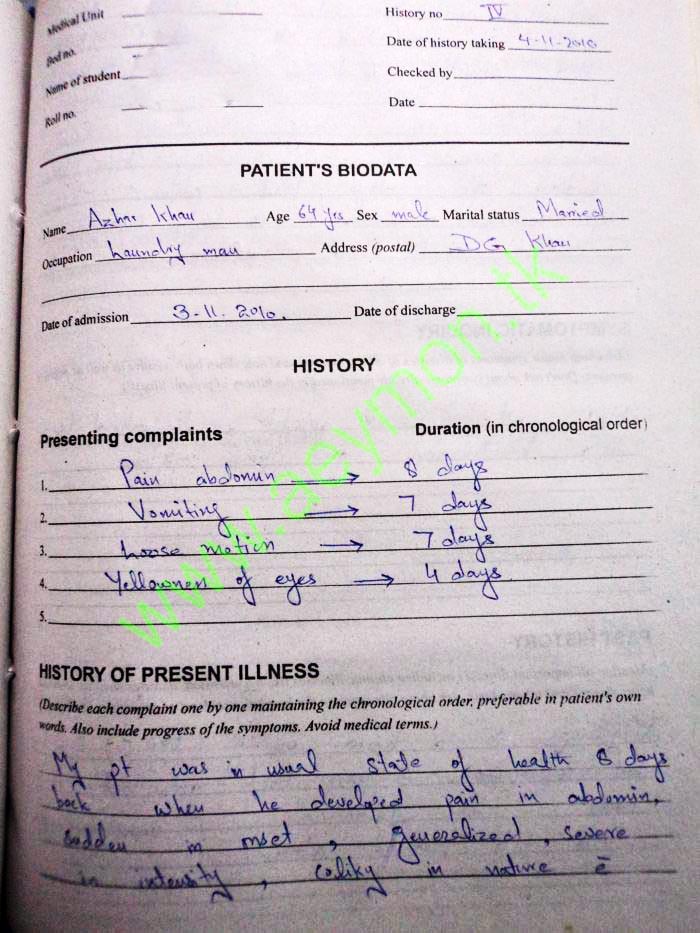 Medical Unit
History no IV
Bed no.
Date of history taking 4-11-2010
Name of student
Checked by
Roll no.
Date
PATIENT'S BIODATA
Name Azhar Khan Age 64 yrs Sex male Marital status Married
Occupation Laundry man Address (postal) DG Khan
Date of admission 3-11-2010. Date of discharge
HISTORY
Presenting complaints Duration (in chronological order)
1. Pain abdomin → 8 days
2. Vomiting → 7 days
3. Loose motion → 7 days
4. Yellowness of eyes → 4 days
5.
HISTORY OF PRESENT ILLNESS
(Describe each complaint one by one maintaining the chronological order, preferable in patient's own
words. Also include progress of the symptoms. Avoid medical terms.)
My pt was in usual state of health 8 days
back when he developed pain in abdomin,
sudden in onset, generalized, severe
in intensity, coliky in nature c̄
www.aeymon.tk